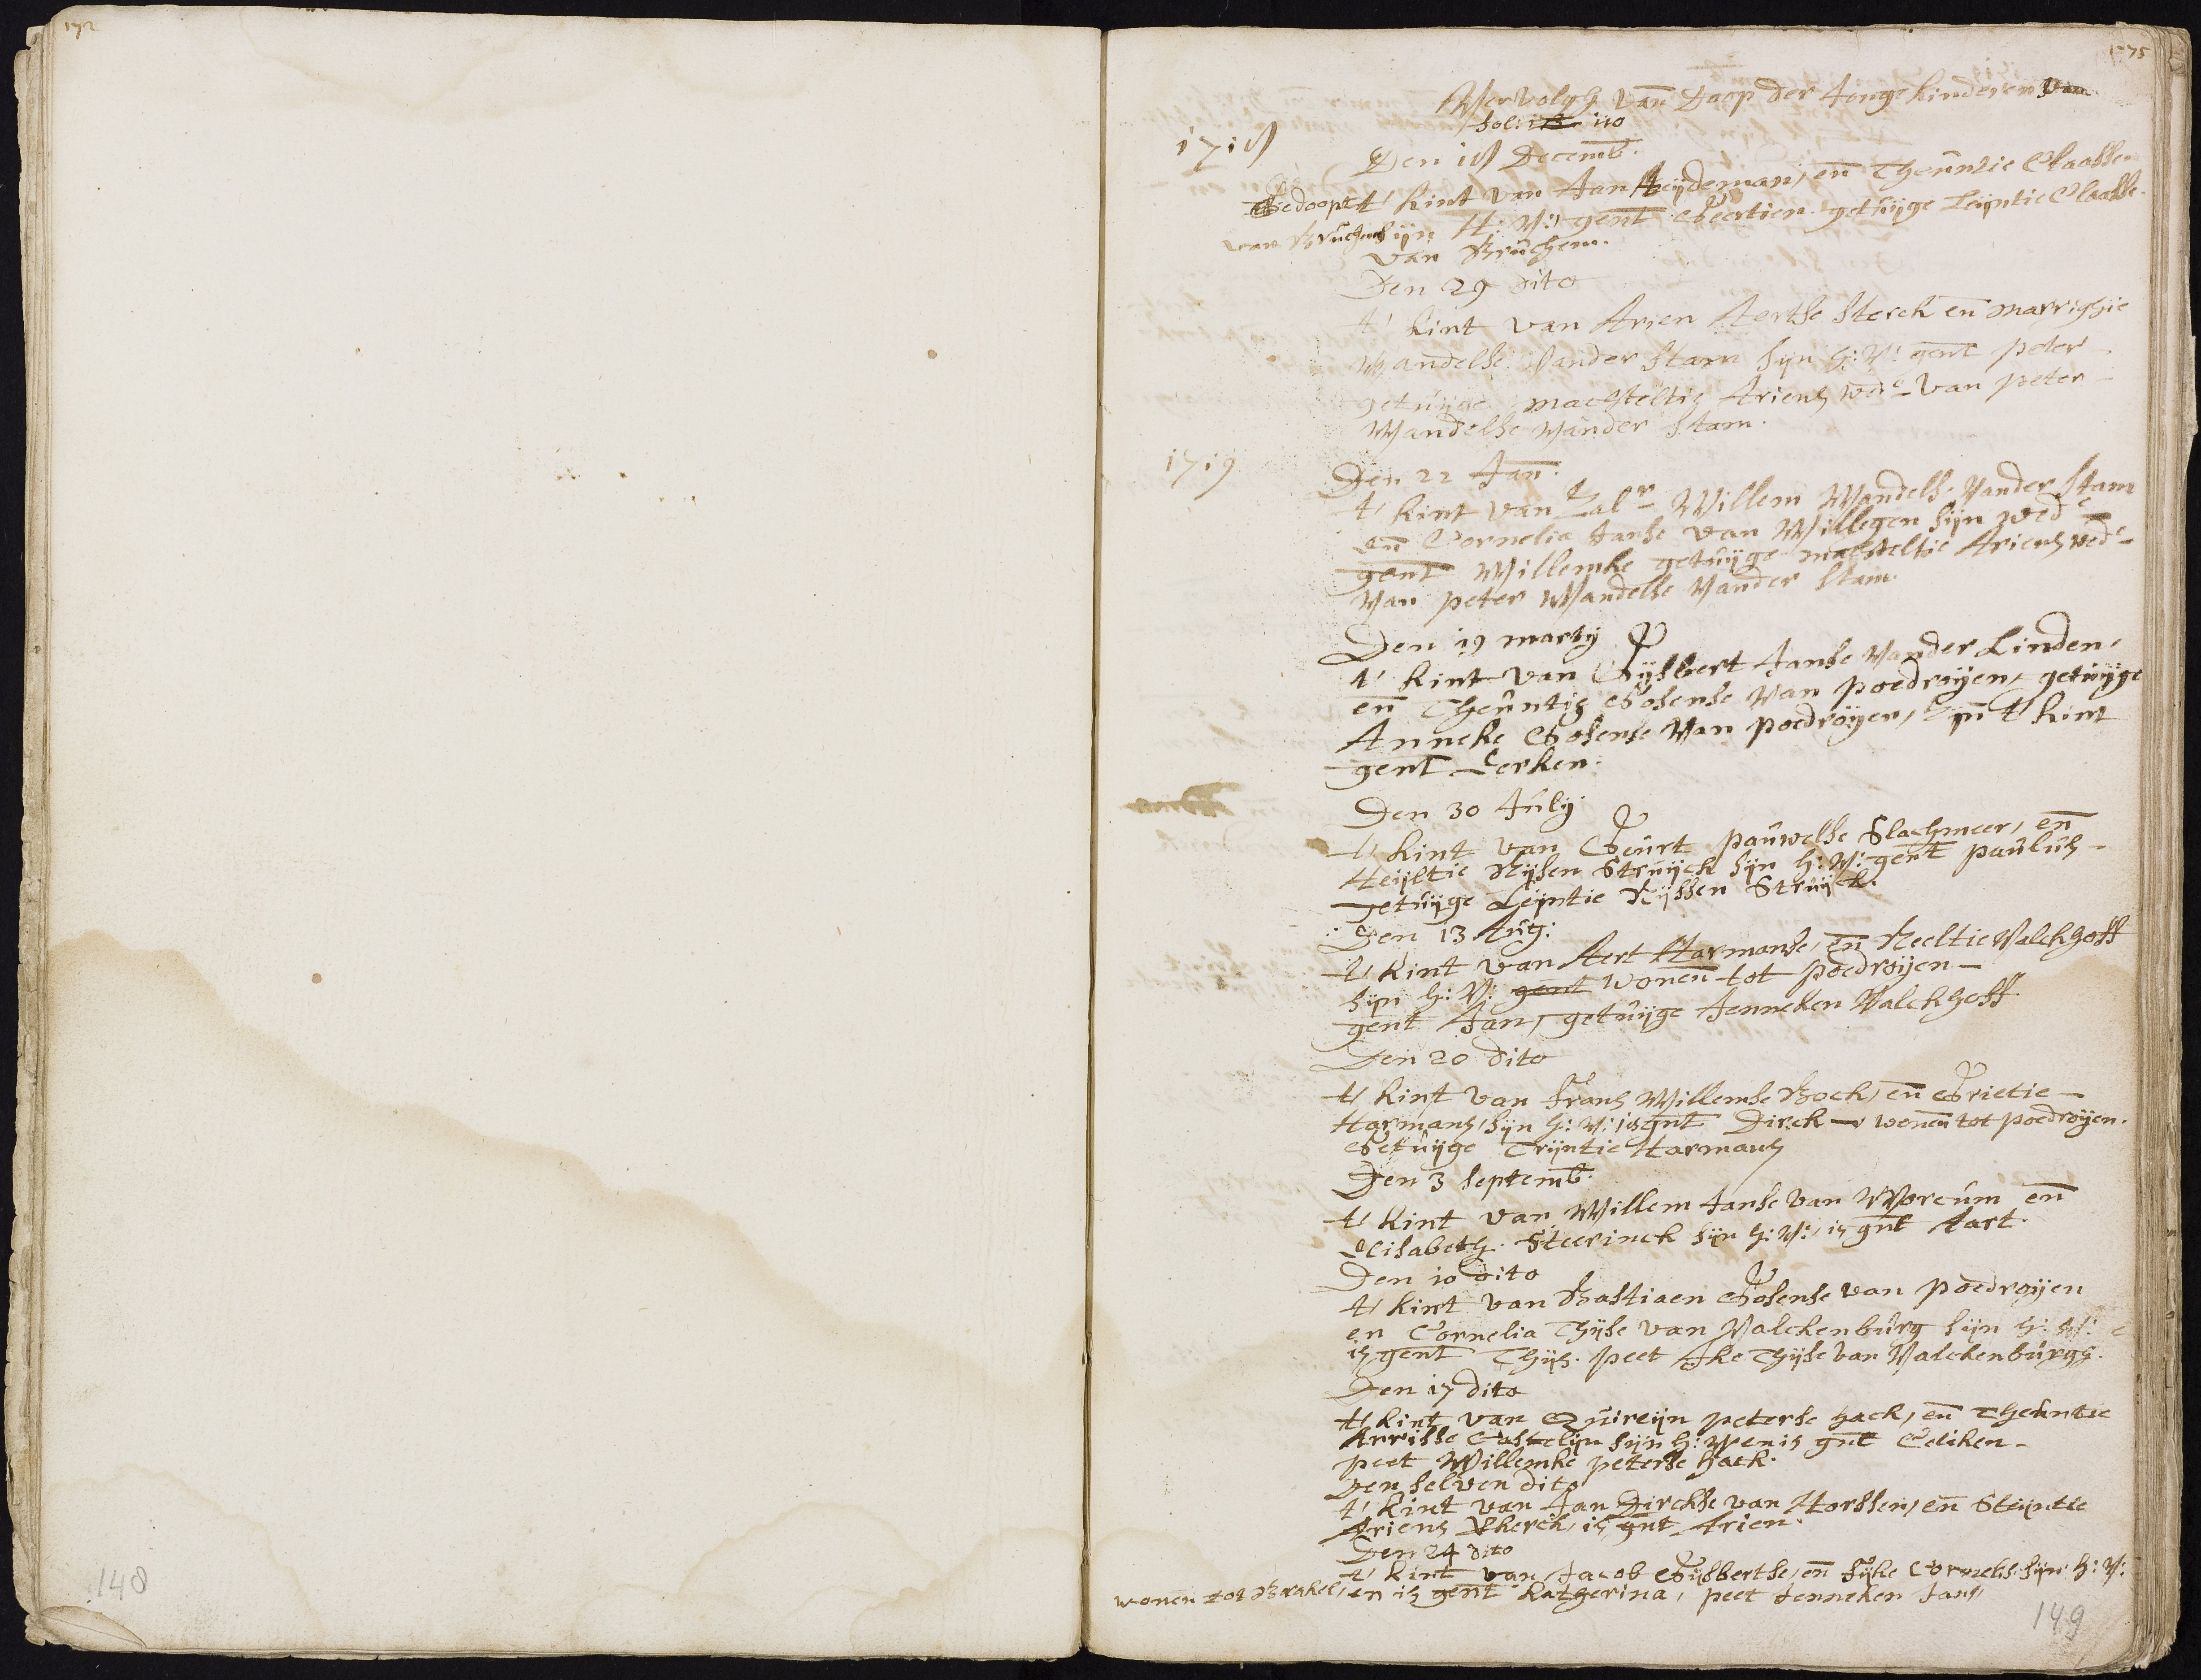 172
175
Vervolgh van Doop der Jonge kinderen van
fol: 110
1718
Den 18 Decemb.
Gedoopt t' kint van Jan Heijdeman, en Theuntie Claasse
van Bruchem sijn H: V: gent Geertien getuijge Leijntie Claasse
van Bruchem.
Den 29 dito
t' kint van Arien Aertse Sterck en marrighie
Wandelse Vander Stam sijn h: V: gent peter
getuijge machteltis Ariens wede van peter
Wandelse Vander Stam.
1719
Den 22 Jan.
t' kint van Zalr Willem Wandels. Vander Stam
en Cornelia Janse van Willegen sijn wede
gent Willemke getuijge machteltie Ariens wede
Van peter Wandelse Vander Stam.
Den 19 martij
t' kint van Gijsbert Janse Vander Linden,
en Theuntis Gosense Van poedroijen, getuijge
Anneke Gosense Van poedroijen, sijn t' kint
gent Eerken.
Den 30 Julij
t' kint van Geurt pauwelse Slachmeer, en
Heijltie Rijsen Struijck sijn h: V: gent paulus
getuijge Leijntie Rijssen Struijck.
Den 13 Aug:
t' kint van Aert Harmanse, en Neeltie Valckhoff
sijn h: V: gent wonen tot poedroijen
gent Jan, getuijge Jenneken Valckhoff
Den 20 dito
t' kint van Frans Willemse Bock, en Grietie
Harmans, sijn h: V: is gnt Dirck wonen tot poedroijen.
Getuijge Trijntie Harmans
Den 3 septemb.
t' kint van Willem Janse van Worcum en
Elisabeth Steerinck sijn h: V:, is gnt Aart.
Den 10 dito
t' kint van Bastiaen Gosense van poedroijen
en Cornelia Thijse van Valckenburg sijn h: V:
is gent Thijs. peet Ike Thijse van Valckenburgh.
Den 17 dito
t' kint van Quireijn peterse hack, en Theuntie
Arrisse Castelijn sijn h: V en is gnt Celiken
peet Willemke peterse hack.
Den selven dito
t' kint van Jan Dirckse van Horssen, en Steijntie
Ariens Sterck, is gnt Arien.
Den 24 dito
t' kint van Jacob Gijsbertse, en Fijke Cornelis. sijn h: V:
wonen tot Brakel, en is gent Katherina, peet Jenneken Jans
148
149